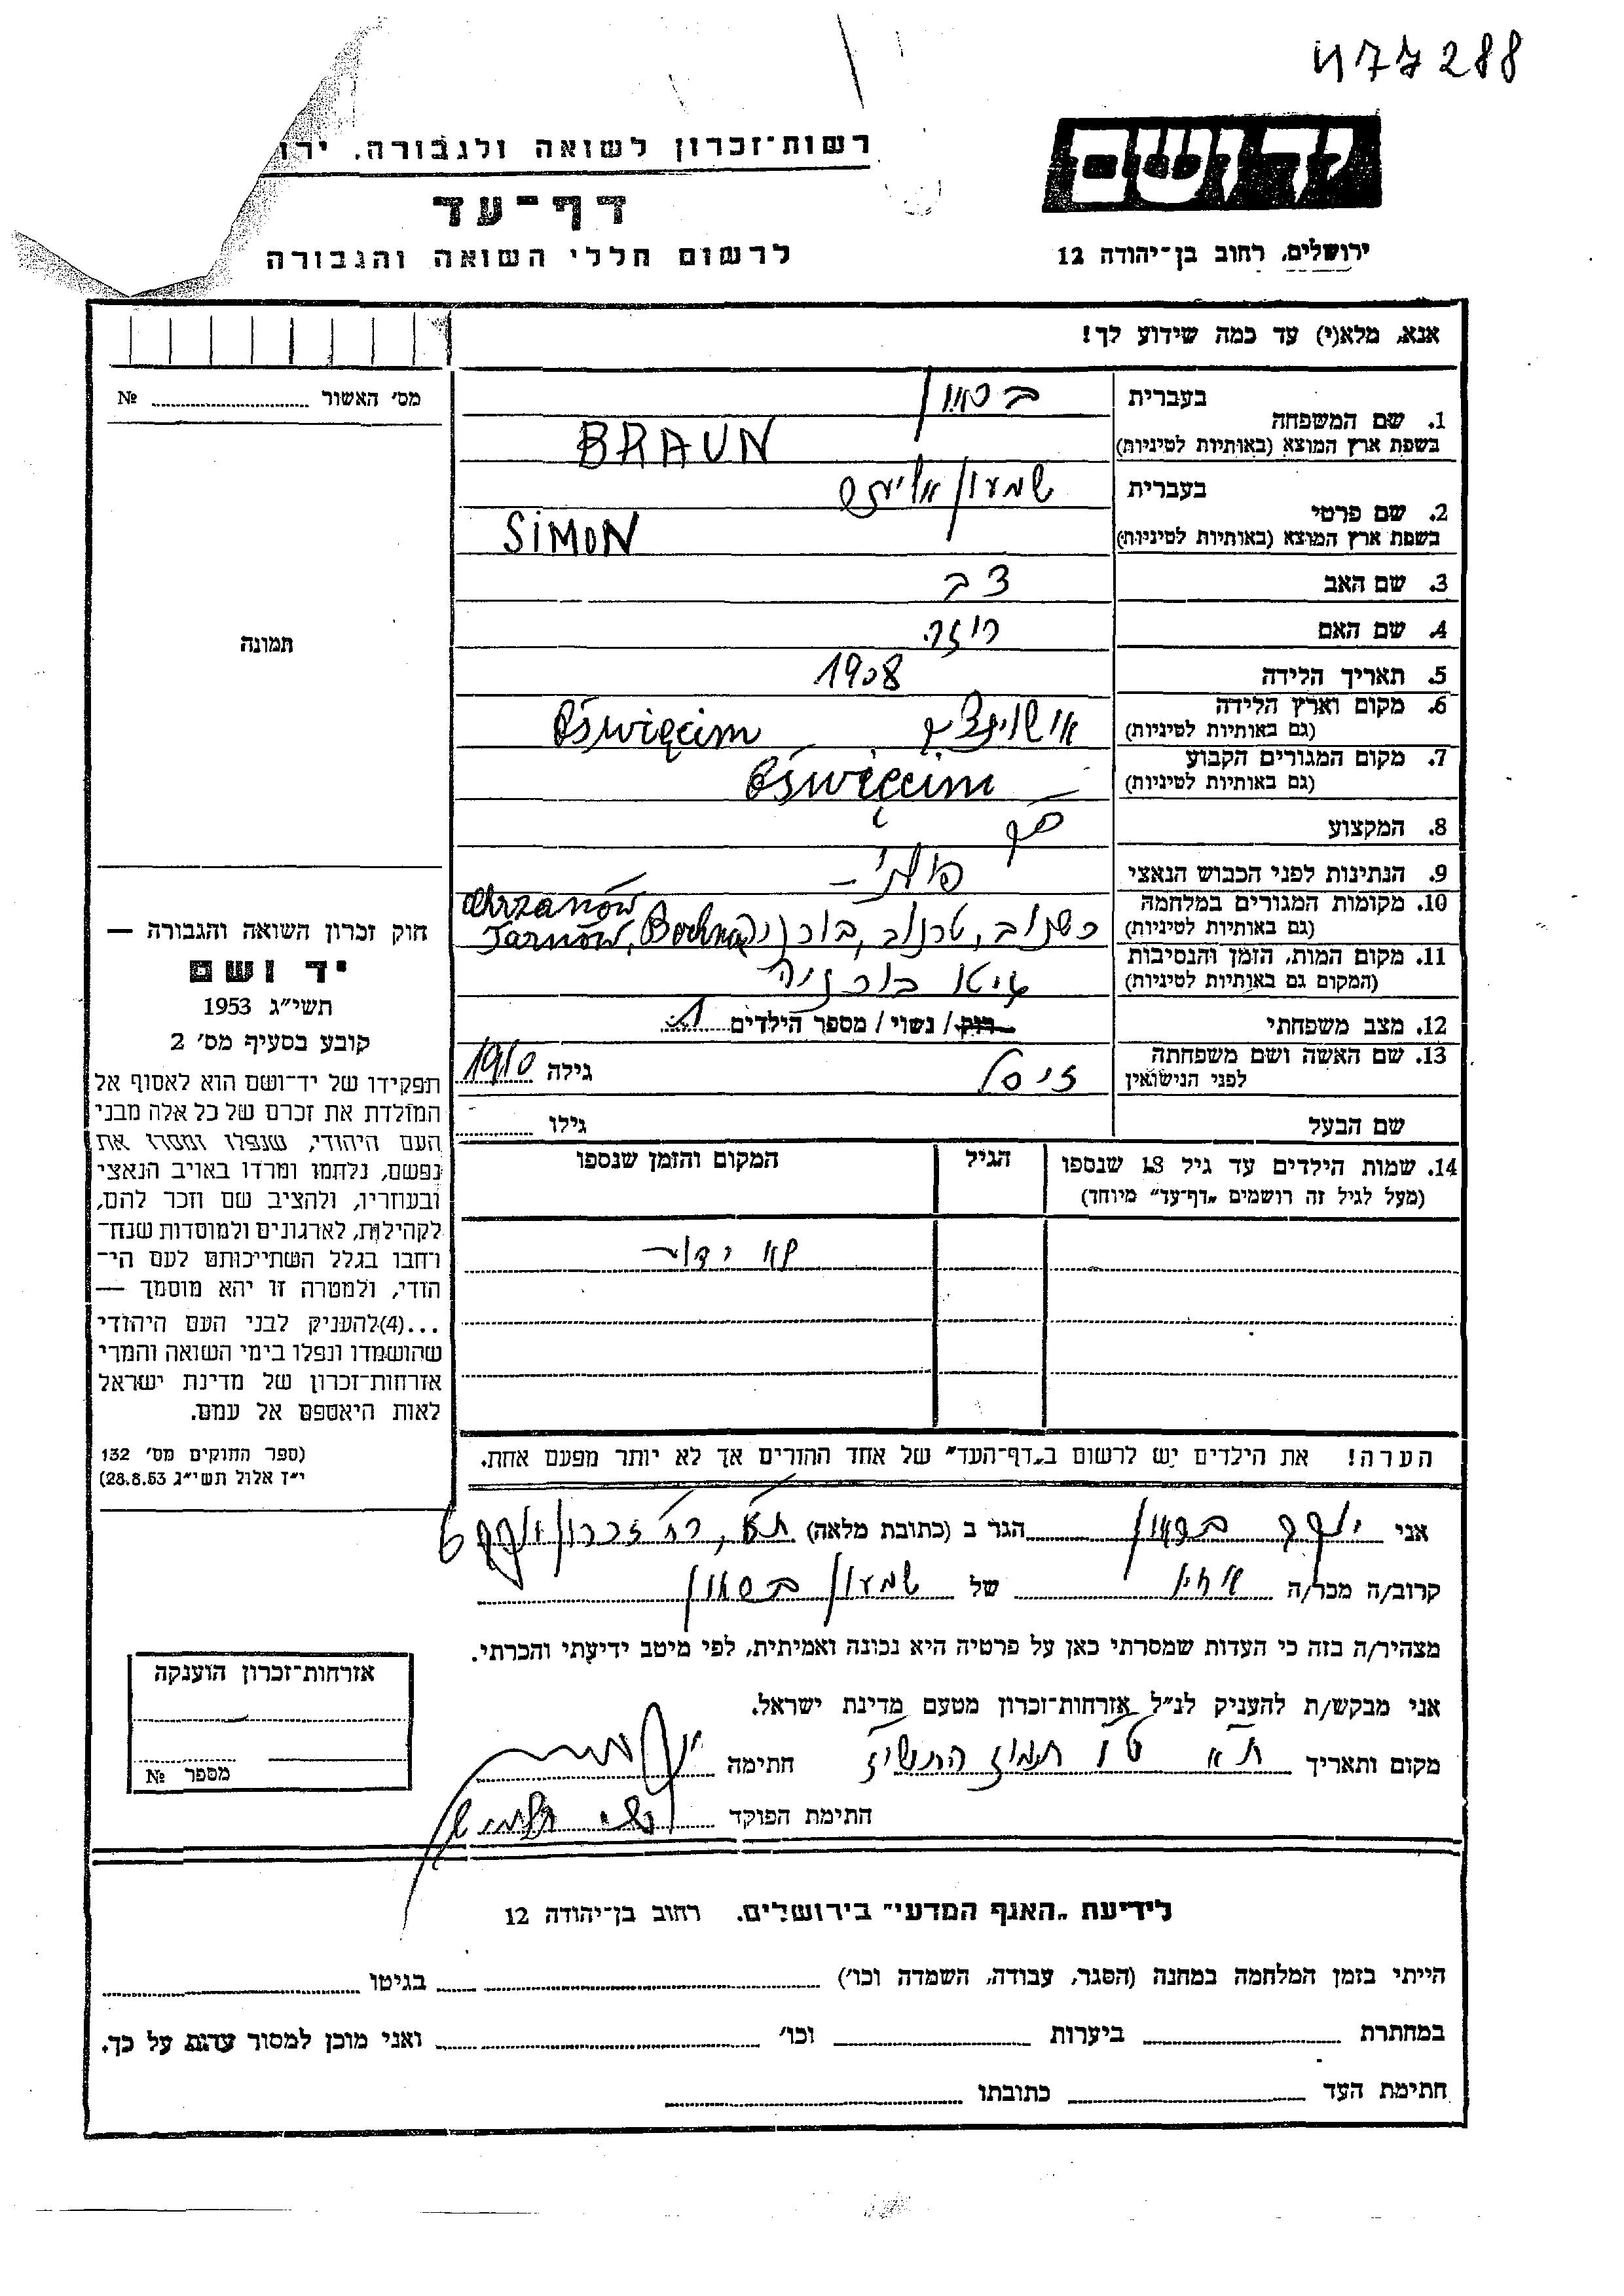 477288
רשות־זכרון לשואה ולגבורה, ירו
דף־עד
לרשום חללי השואה והגבורה
יד ושם
ירושלים, רחוב בן־יהודה 12
אנא, מלא(י) עד כמה שידוע לך!
מס׳ האשור № 
תמונה
1. שם המשפחה
בעברית
בראון
בשפת ארץ המוצא (באותיות לטיניות)
BRAUN
2. שם פרטי
בעברית
שמעון
בשפת ארץ המוצא (באותיות לטיניות)
SIMON
3. שם האב
צבי
4. שם האם
רוזה
5. תאריך הלידה
1908
6. מקום וארץ הלידה
(גם באותיות לטיניות)
Oświęcim
7. מקום המגורים הקבוע
(גם באותיות לטיניות)
Oświęcim
8. המקצוע
9. הנתינות לפני הכבוש הנאצי
פולני
10. מקומות המגורים במלחמה
(גם באותיות לטיניות)
Chrzanów
כשנוב, טרנוב, בוכניה Tarnów, Bochnia
11. מקום המות, הזמן והנסיבות
(המקום גם באותיות לטיניות)
גיטו בוכניה
12. מצב משפחתי
רווק / נשוי / מספר הילדים 1
13. שם האשה ושם משפחתה
לפני הנישואין
זיסל
גילה 1910
שם הבעל
גילו
14. שמות הילדים עד גיל 18 שנספו
(מעל לגיל זה רושמים „דף־עד״ מיוחד)
הגיל
המקום והזמן שנספו
לא ידוע
הערה! את הילדים יש לרשום ב„דף־העד״ של אחד ההורים אך לא יותר מפעם אחת.
חוק זכרון השואה והגבורה —
יד ושם
תשי״ג 1953
קובע בסעיף מס׳ 2
תפקידו של יד־ושם הוא לאסוף אל
המולדת את זכרם של כל אלה מבני
העם היהודי, שנפלו ומסרו את
נפשם, נלחמו ומרדו באויב הנאצי
ובעוזריו, ולהציב שם וזכר להם,
לקהילות, לארגונים ולמוסדות שנח־
רחבו בגלל השתייכותם לעם הי־
הודי, ולמטרה זו יהא מוסמך —
...(4)להעניק לבני העם היהודי
שהושמדו ונפלו בימי השואה והמרי
אזרחות־זכרון של מדינת ישראל
לאות היאספם אל עמם.
(ספר החוקים מס׳ 132
י״ז אלול תשי״ג 28.8.53)
אני יוסף בראון הגר ב (כתובת מלאה) ת״א, רח׳ זכרון יעקב 6
קרוב/ה מכר/ה אחיו של שמעון בראון
מצהיר/ה בזה כי העדות שמסרתי כאן על פרטיה היא נכונה ואמיתית, לפי מיטב ידיעתי והכרתי.
אני מבקש/ת להעניק לנ״ל אזרחות־זכרון מטעם מדינת ישראל.
מקום ותאריך ת״א ט״ו תמוז התשי״ז חתימה
חתימת הפוקד
אזרחות־זכרון הוענקה
מספר №
לידיעת „האגף המדעי״ בירושלים. רחוב בן־יהודה 12
הייתי בזמן המלחמה במחנה (הסגר, עבודה, השמדה וכו׳) בגיטו
במחתרת ביערות וכו׳ ואני מוכן למסור עדות על כך.
חתימת העד כתובתו